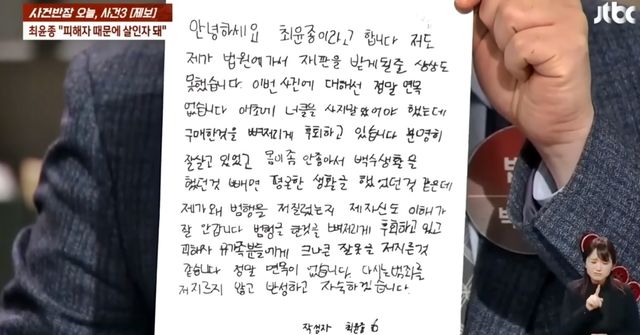 사건반장 오늘, 사건3 [제보]
최윤종 "피해자 때문에 살인자 돼"
jtbc
안녕하세요 최윤종이라고 합니다 저도
제가 법원에가서 재판을 받게될줄 상상도
못했습니다. 이번 사건에 대해서 정말 면목
없습니다 애초에 너클을 사지말았어야 했는데
구매한것을 뼈저리게 후회하고 있습니다 분명히
잘살고 있었고 몸이좀 안좋아서 백수생활을
했던것 빼면 평온한 생활을 했었던것 같은데
제가 왜 범행을 저질렀는지 제자신도 이해가
잘 안갑니다 범행을 한것을 뼈저리게 후회하고 있고
피해자 유가족분들에게 크나큰 잘못을 저지른것
같습니다 정말 면목이 없습니다. 다시는 범죄를
저지르지 않고 반성하고 자숙하겠습니다.
작성자 최윤종